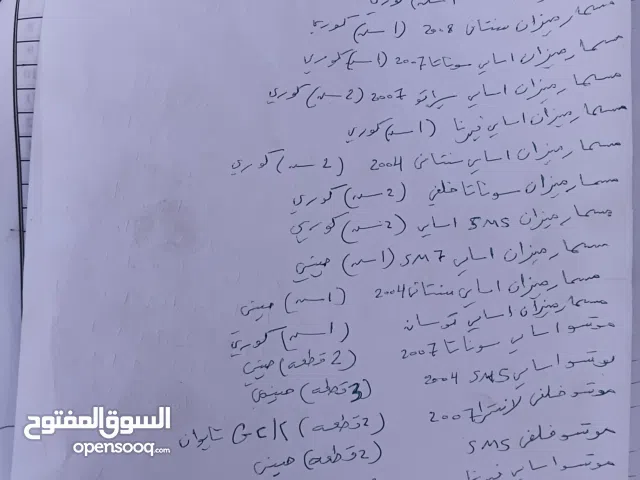 مسمار ميزان سنتافي 2008 (1 سد) كوريا
مسمار ميزان اساسي سوناتا 2007 (1 سد) كوري
مسمار ميزان اساسي سيراتو 2007 (2 سد) كوري
مسمار ميزان اساسي فيرنا (1 سد) كوري
مسمار ميزان اساسي سنتافي 2004 (2 سد) كوري
مسمار ميزان سوناتا خلفي (2 سد) كوري
مسمار ميزان SM5 اساسي (2 سد) كوري
مسمار ميزان اساسي SM7 (1 سد) صيني
مسمار ميزان اساسي سنتافي 2004 (1 سد) صيني
مسمار ميزان اساسي توسان (1 سد) كوري
موتسو اساسي سوناتا 2007 (2 قطعه) صيني
موتسو اساسي SM5 2004 (3 قطعه) صيني
موتسو خلفي لانترا 2007 (2 قطعه) تايوان
موتسو خلفي SM5 (2 قطعه) صيني
موتسو اساسي فيرنا
السوق المفتوح
opensooq.com